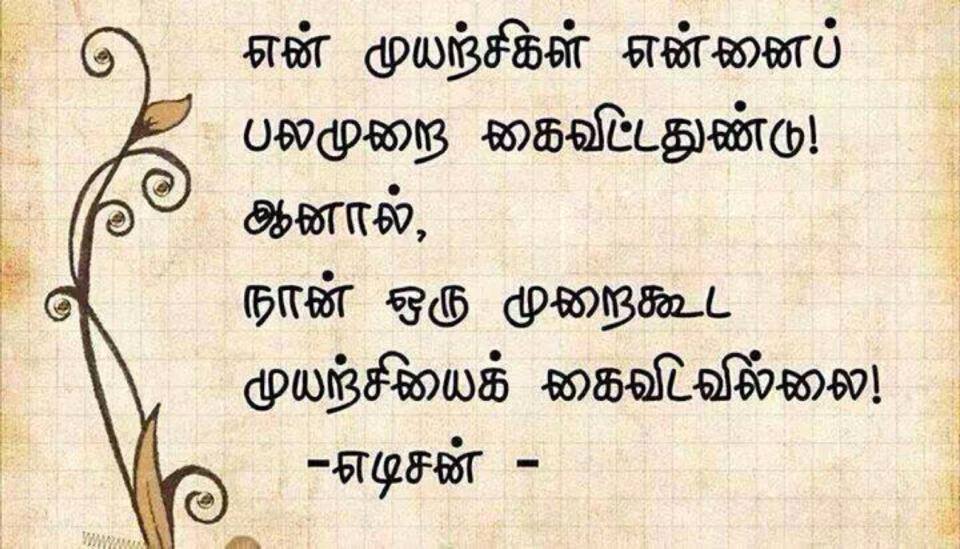 என் முயற்சிகள் என்னைப்
பலமுறை கைவிட்டதுண்டு!
ஆனால்,
நான் ஒரு முறைகூட
முயற்சியைக் கைவிடவில்லை!
-எடிசன் -